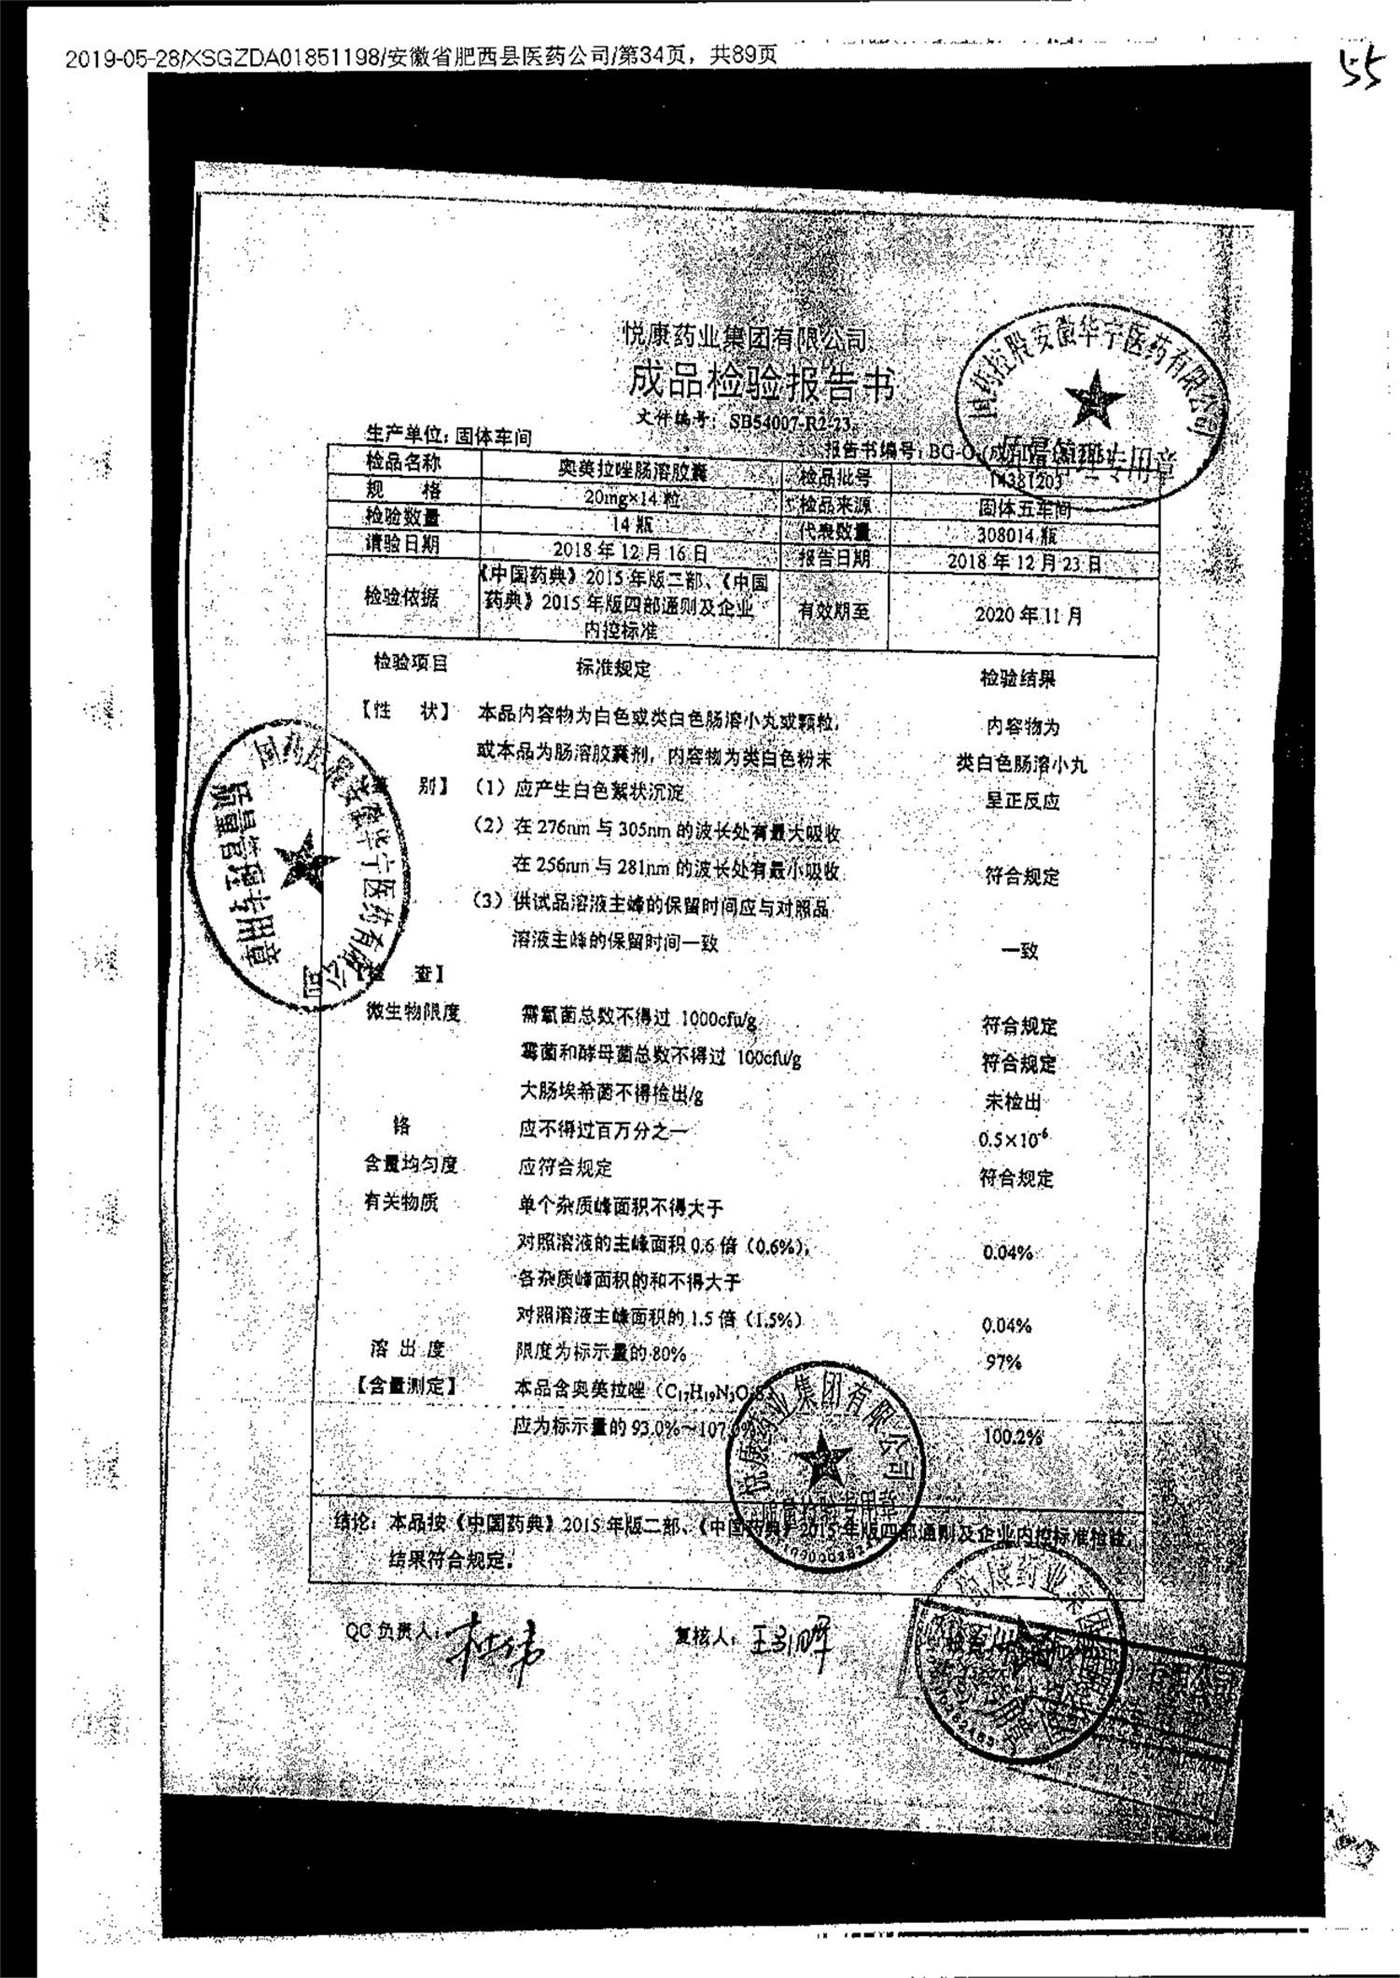 2019-05-28/XSGZDA01851198/安徽省肥西县医药公司/第34页，共89页
55
悦康药业集团有限公司
成品检验报告书
文件编号：SB54007-R2-23
生产单位：固体车间
报告书编号：BG-O-(成
检品名称 奥美拉唑肠溶胶囊 检品批号 14381203
规 格 20mg×14粒 检品来源 固体五车间
检验数量 14瓶 代表数量 308014瓶
请验日期 2018年12月16日 报告日期 2018年12月23日
检验依据 《中国药典》2015年版二部、《中国药典》2015年版四部通则及企业内控标准 有效期至 2020年11月
检验项目 标准规定 检验结果
【性 状】 本品内容物为白色或类白色肠溶小丸或颗粒, 内容物为
或本品为肠溶胶囊剂，内容物为类白色粉末 类白色肠溶小丸
别】 （1）应产生白色絮状沉淀 呈正反应
（2）在276nm与305nm的波长处有最大吸收
在256nm与281nm的波长处有最小吸收 符合规定
（3）供试品溶液主峰的保留时间应与对照品
溶液主峰的保留时间一致 一致
【检 查】
微生物限度 需氧菌总数不得过 1000cfu/g 符合规定
霉菌和酵母菌总数不得过 100cfu/g 符合规定
大肠埃希菌不得检出/g 未检出
铬 应不得过百万分之一 0.5×10⁻⁶
含量均匀度 应符合规定 符合规定
有关物质 单个杂质峰面积不得大于
对照溶液的主峰面积0.6倍（0.6%）, 0.04%
各杂质峰面积的和不得大于
对照溶液主峰面积的1.5倍（1.5%） 0.04%
溶 出 度 限度为标示量的80% 97%
【含量测定】 本品含奥美拉唑（C₁₇H₁₉N₃O₃S）
应为标示量的93.0%～107.0% 100.2%
结论：本品按《中国药典》2015年版二部、《中国药典》2015年版四部通则及企业内控标准检验，
结果符合规定。
QC负责人： 杜伟 复核人：
国药控股安徽华宁医药有限公司
质量管理专用章
国药控股安徽华宁医药有限公司
质量管理专用章
悦康药业集团有限公司
质量检验专用章
悦康药业集团